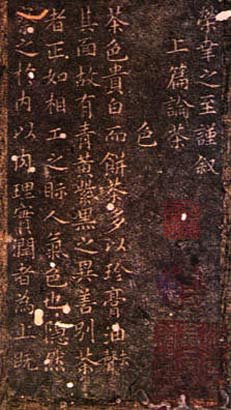 榮幸之至謹叙
上篇論茶
色
茶色貴白而餅茶多以珍膏油去聲
其面故有青黃紫黑之異善別茶
者正如相工之眡人氣色也隱然
察之於内以肉理實潤者為上既